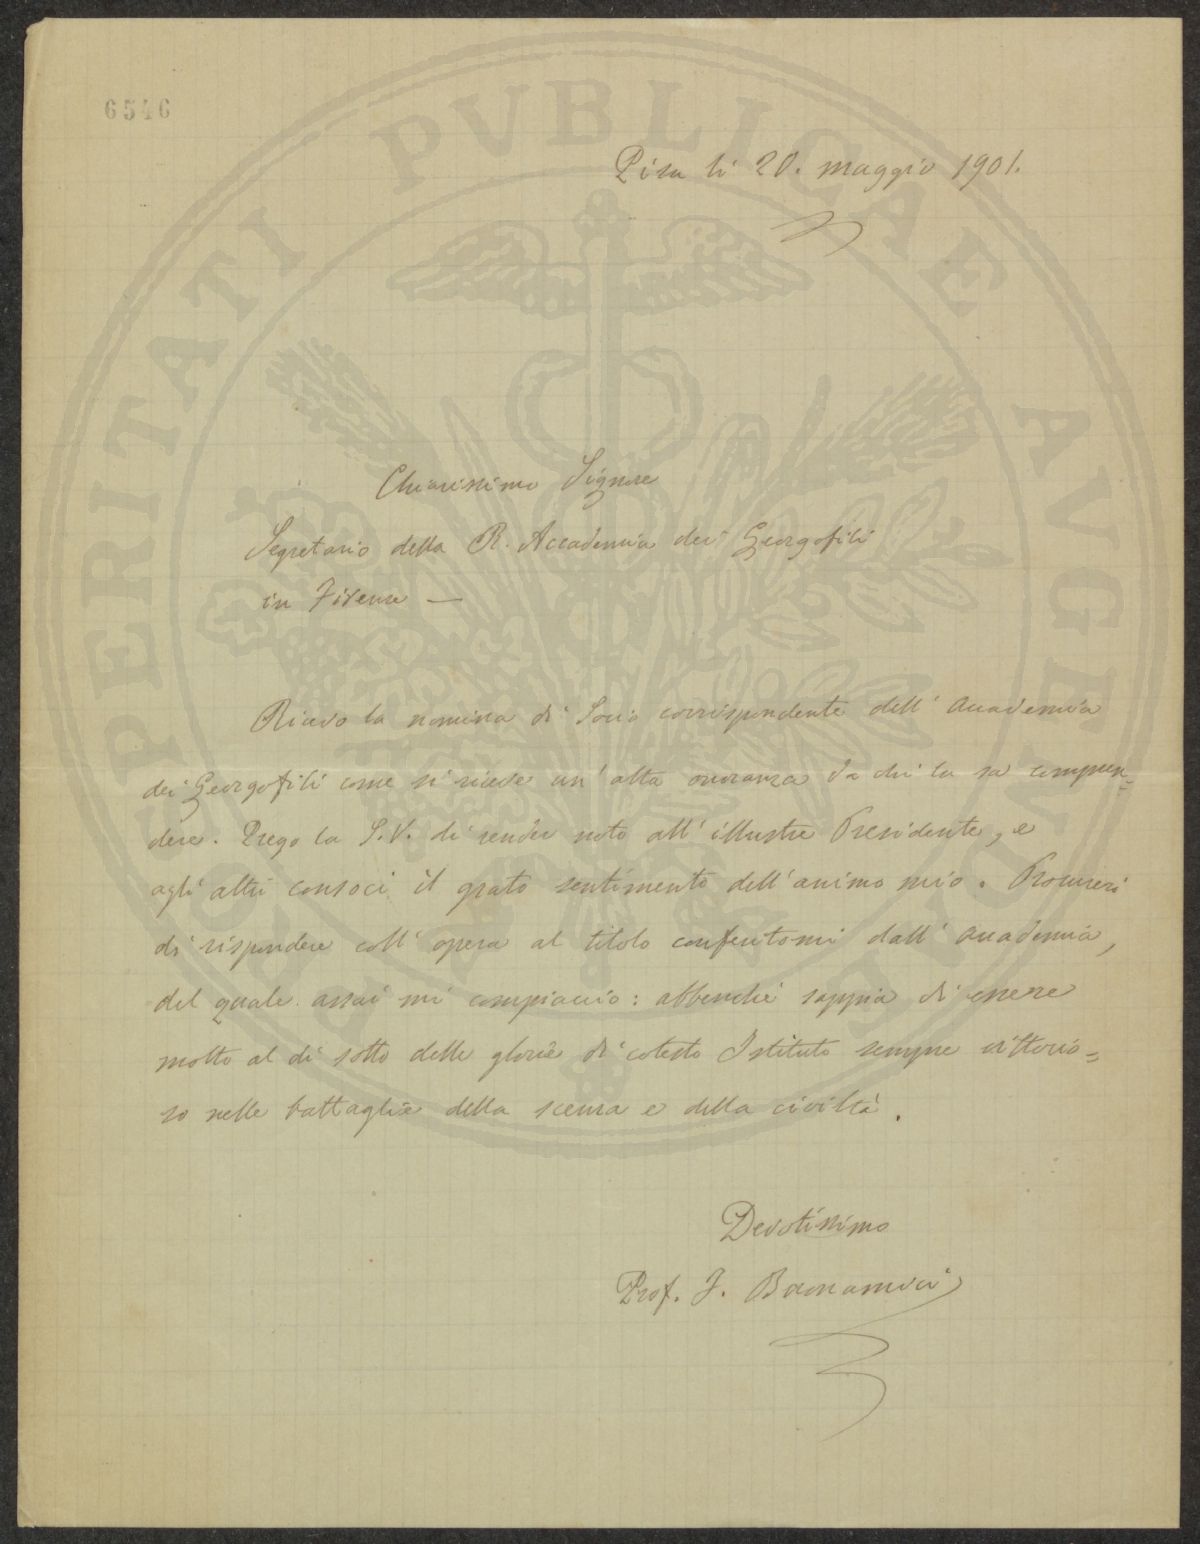 6546
PROSPERITATI PVBLICAE AVGENDAE
Pisa li 20. maggio 1901.
Chiarissimo Signore
Segretario della R. Accademia dei Georgofili
in Firenze —
Ricevo la nomina di Socio corrispondente dell' Accademia
dei Georgofili come si riceve un' alta onoranza da chi la sa compren=
dere. Prego la S.V. di render noto all' illustre Presidente, e
agli altri consoci il grato sentimento dell' animo mio. Procurerò
di rispondere coll' opera al titolo conferitomi dall' Accademia,
del quale assai mi compiaccio: abbenché sappia di essere
molto al di sotto delle glorie di cotesto Istituto sempre vittorio=
so nelle battaglie della scienza e della civiltà.
Devotissimo
Prof. F. Buonamici